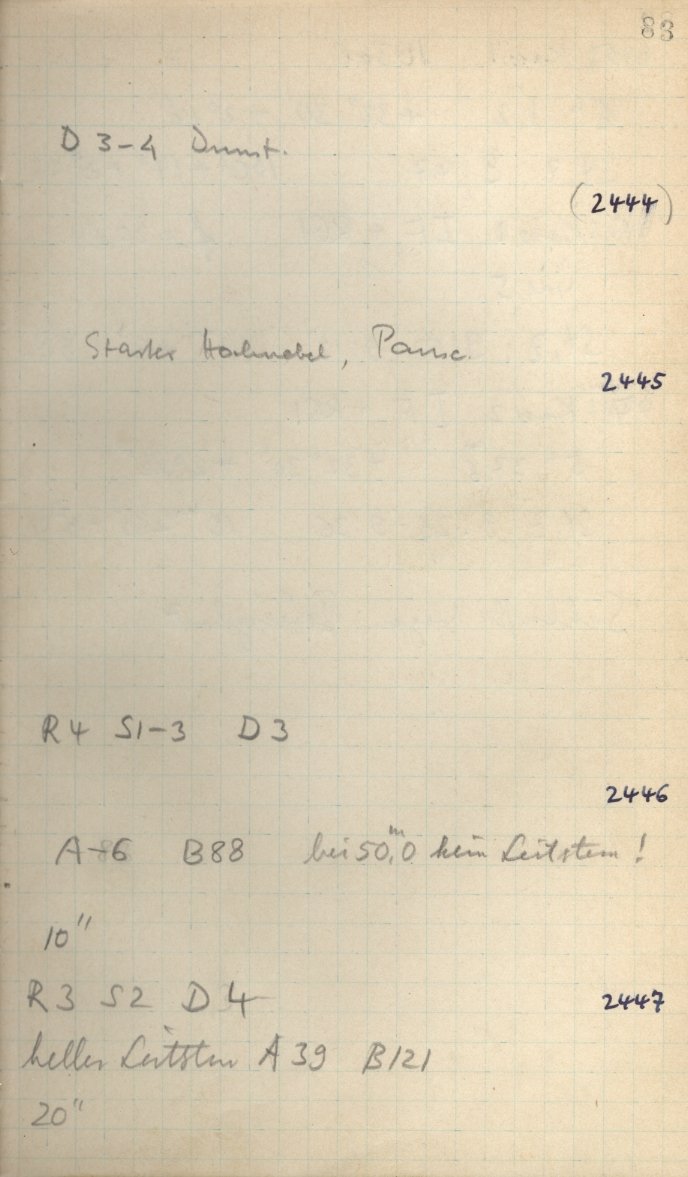 83
D 3-4 Dunst.
(2444)
Starker Hochnebel, Pause.
2445
R4 S1-3 D3
2446
A-6 B88 bei 50,ᵐ0 kein Leitstern!
10"
R3 S2 D4
2447
heller Leitstern A39 B121
20"